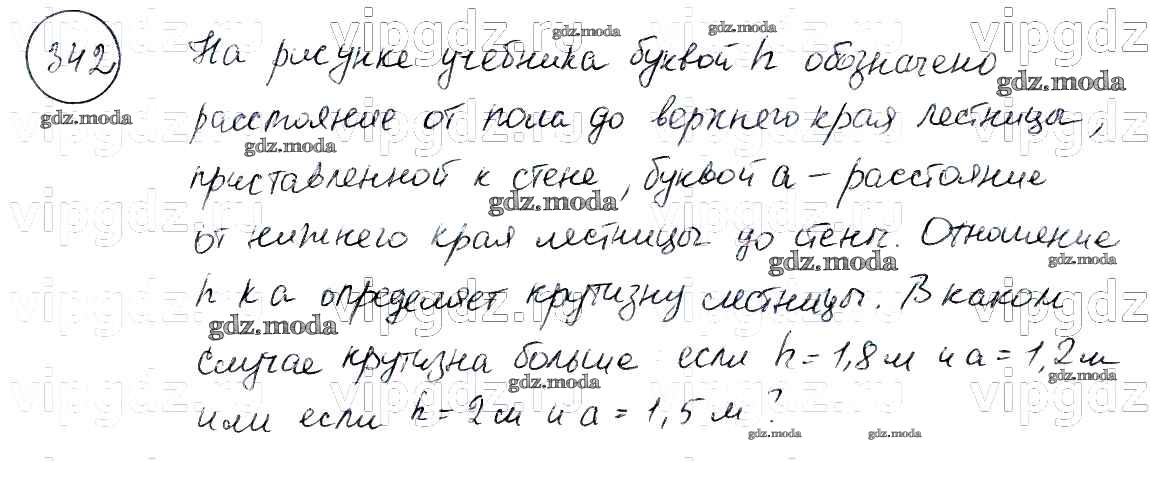 342
На рисунке учебника буквой h обозначено
расстояние от пола до верхнего края лестницы,
приставленной к стене, буквой a – расстояние
от нижнего края лестницы до стены. Отношение
h к a определяет крутизну лестницы. В каком
случае крутизна больше если h = 1,8 м и a = 1,2 м
или если h = 2 м и a = 1,5 м?